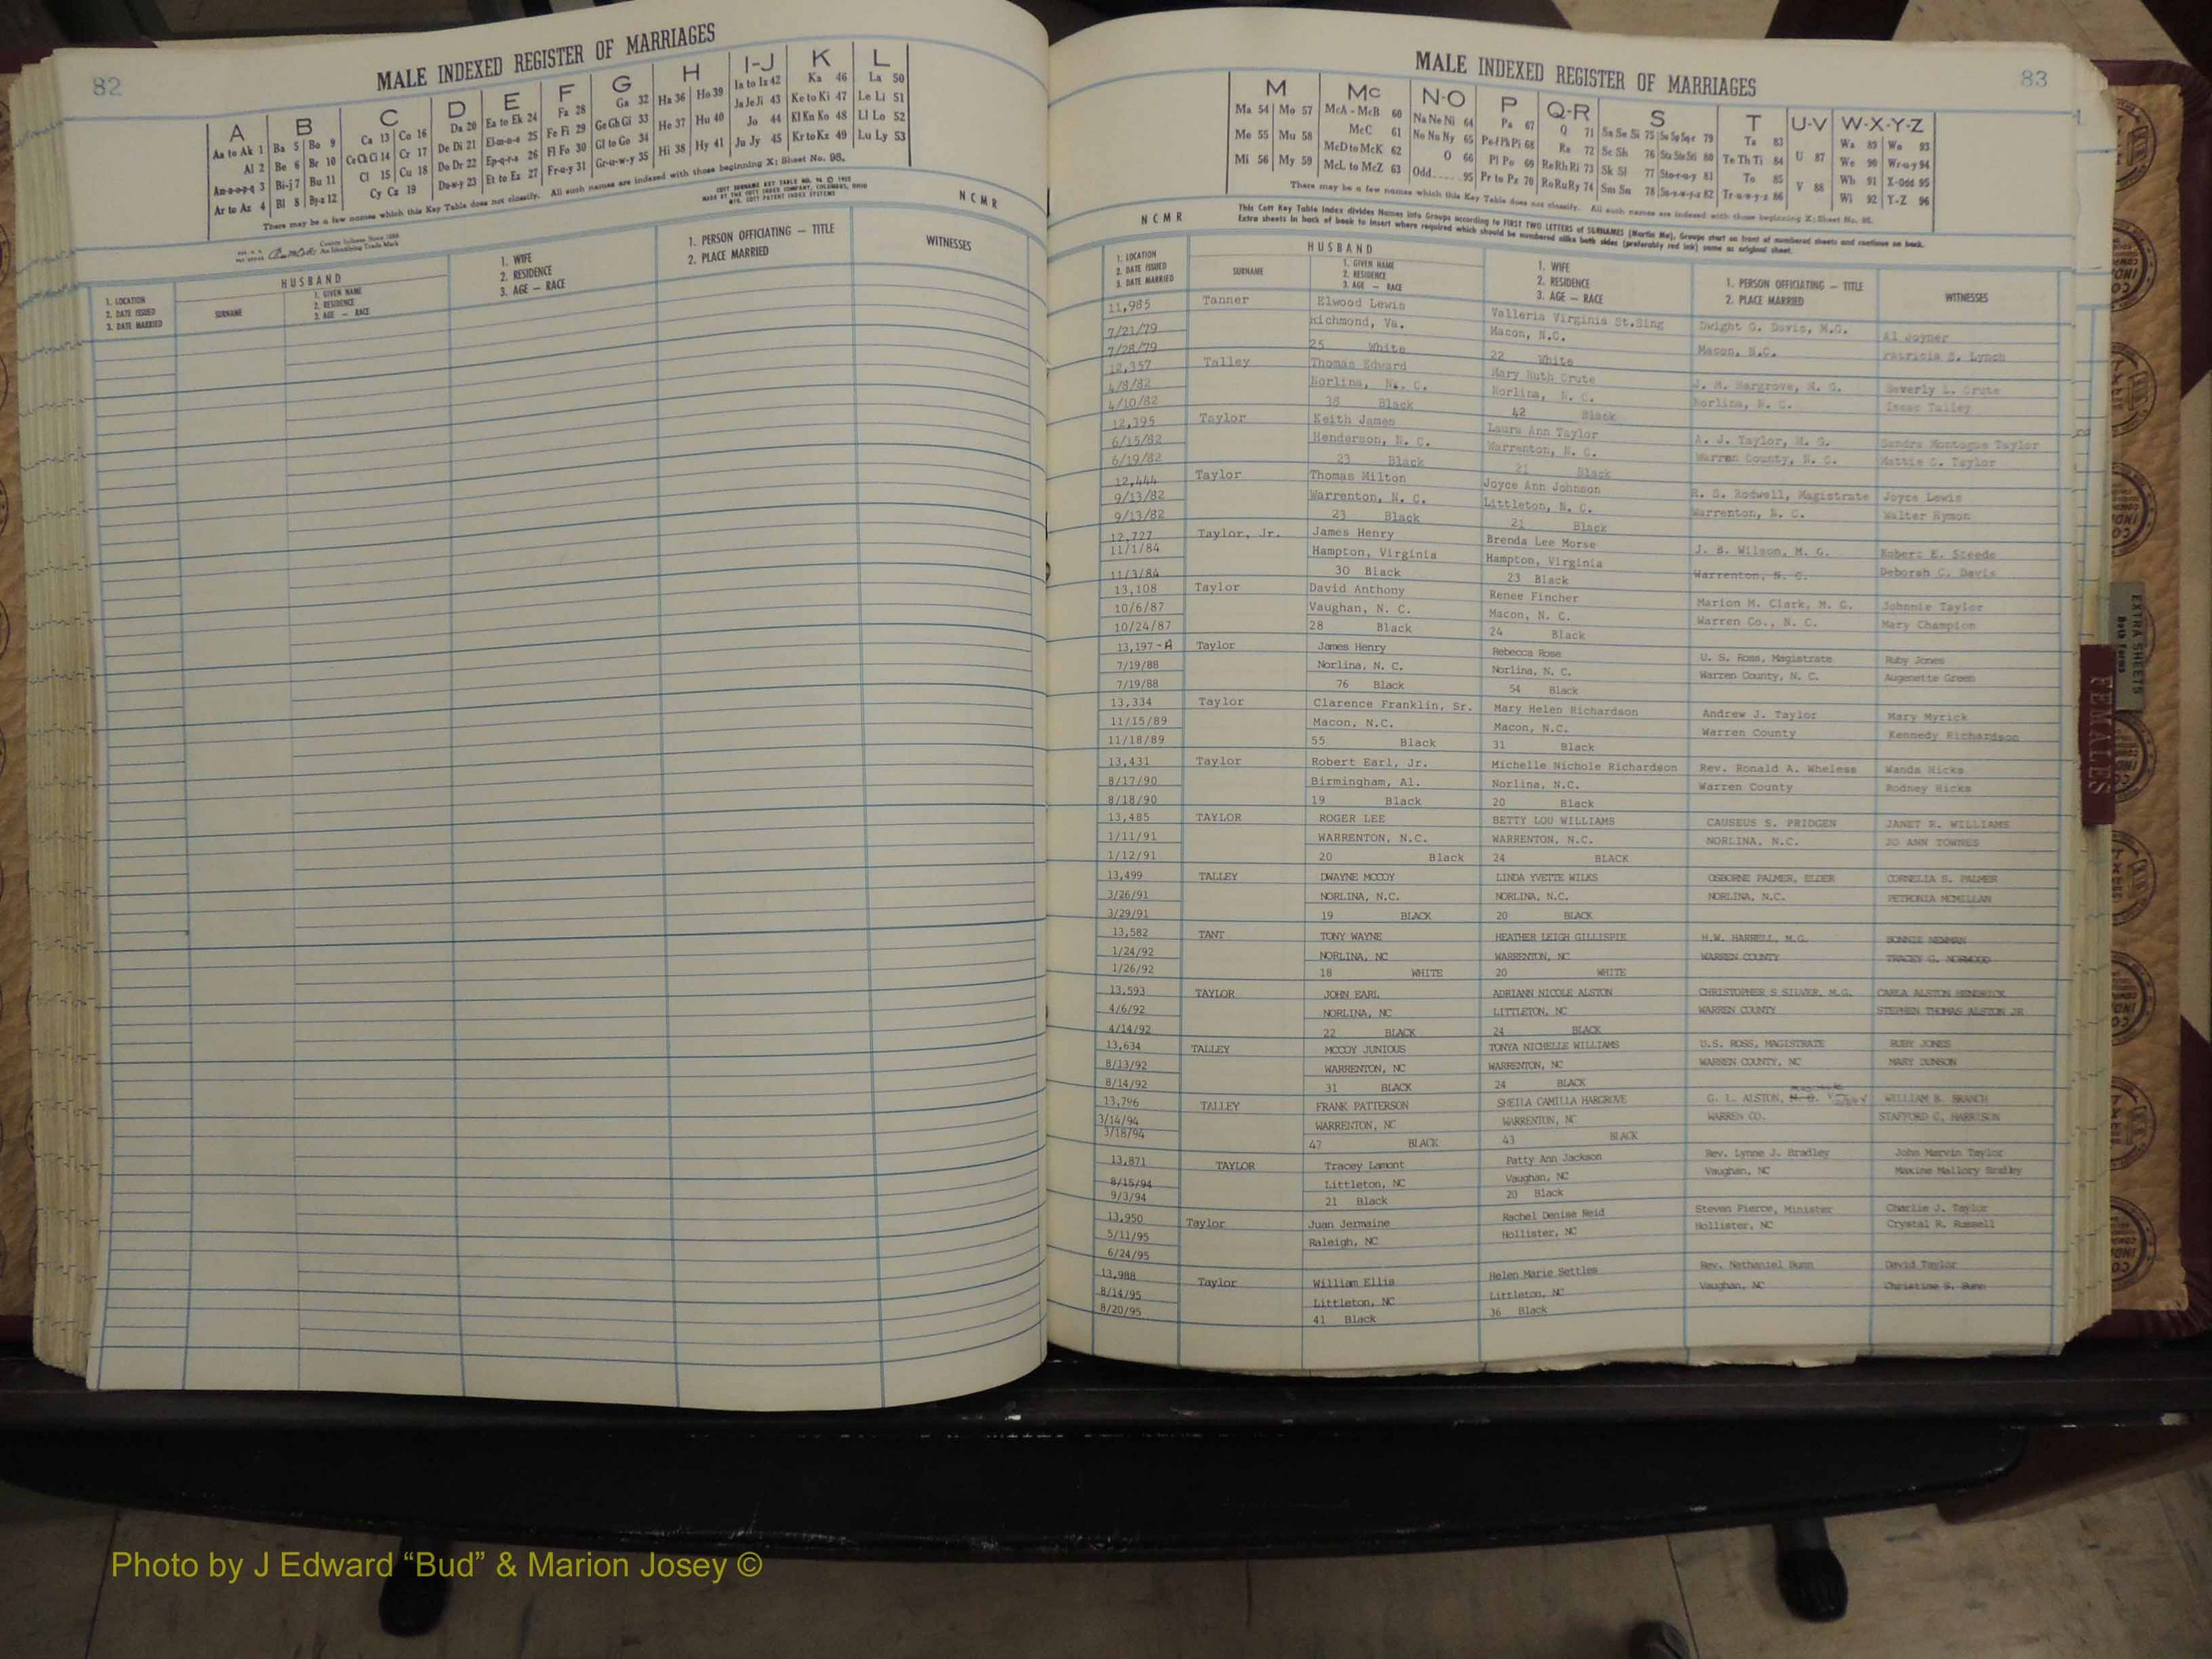 82
MALE INDEXED REGISTER OF MARRIAGES
A B C D E F G H I-J K L
Aa to Ak 1 Ba 5 Bo 9 Ca 13 Co 16 Da 20 Ea to Ek 24 Fa 28 Ga 32 Ha 36 Ho 39 Ia to Iz 42 Ka 46 La 50
Al 2 Be 6 Br 10 Ce Ch Ci 14 Cr 17 De Di 21 El-m-n-o 25 Fe Fi 29 Ge Gh Gi 33 He 37 Hu 40 Ja Je Ji 43 Ke to Ki 47 Le Li 51
An-o-p-q 3 Bi-j 7 Bu 11 Cl 15 Cu 18 Do Dr 22 Ep-q-r-s 26 Fl Fo 30 Gl to Go 34 Hi 38 Hy 41 Jo 44 Kl Kn Ko 48 Ll Lo 52
Ar to Az 4 Bl 8 By-z 12 Cy Cz 19 Du-w-y 23 Et to Ez 27 Fr-u-y 31 Gr-u-w-y 35 Ju Jy 45 Kr to Kz 49 Lu Ly 53
There may be a few names which this Key Table does not classify. All such names are indexed with those beginning X; Sheet No. 96.
N C M R
County Indexes Since 1888
An Identifying Trade Mark
1. LOCATION
2. DATE ISSUED
3. DATE MARRIED
HUSBAND
SURNAME
1. GIVEN NAME
2. RESIDENCE
3. AGE — RACE
1. WIFE
2. RESIDENCE
3. AGE — RACE
1. PERSON OFFICIATING — TITLE
2. PLACE MARRIED
WITNESSES
83
MALE INDEXED REGISTER OF MARRIAGES
M Mc N-O P Q-R S T U-V W-X-Y-Z
Ma 54 Mo 57 McA - McB 60 Na Ne Ni 64 Pa 67 Q 71 Sa Se Si 75 Sn So Sq-r 79 Ta 83 Wa 89 Wo 93
Me 55 Mu 58 McC 61 No Nu Ny 65 Pe-f Ph Pi 68 Ra 72 Sc Sh 76 Sta Ste Sti 80 Te Th Ti 84 U 87 We 90 Wr-u-y 94
Mi 56 My 59 McD to McK 62 O 66 Pl Po 69 Re Rh Ri 73 Sk Sl 77 Sto-r-u-y 81 To 85 V 88 Wh 91 X-Odd 95
McL to McZ 63 Odd 95 Pr to Pz 70 Ro Ru Ry 74 Sm Sn 78 Su-v-w-y-z 82 Tr-u-w-y-z 86 Wi 92 Y-Z 96
There may be a few names which this Key Table does not classify. All such names are indexed with those beginning X; Sheet No. 96.
This Cott Key Table Index divides Names into Groups according to FIRST TWO LETTERS of SURNAMES (Martin Ma), Groups start on front of numbered sheets and continue on back.
Extra sheets in back of book to insert where required which should be numbered alike both sides (preferably red ink) same as original sheet.
N C M R
1. LOCATION
2. DATE ISSUED
3. DATE MARRIED
HUSBAND
SURNAME
1. GIVEN NAME
2. RESIDENCE
3. AGE — RACE
1. WIFE
2. RESIDENCE
3. AGE — RACE
1. PERSON OFFICIATING — TITLE
2. PLACE MARRIED
WITNESSES
11,985 Tanner Elwood Lewis Valleria Virginia St.Sing Dwight G. Davis, M.G. Al Joyner
7/21/79 Richmond, Va. Macon, N.C. Macon, N.C. Patricia S. Lynch
7/28/79 25 White 22 White
12,357 Talley Thomas Edward Mary Ruth Crute J. M. Hargrove, M. G. Beverly L. Crute
4/8/82 Norlina, N. C. Norlina, N. C. Norlina, N. C. Isaac Talley
4/10/82 38 Black 42 Black
12,395 Taylor Keith James Laura Ann Taylor A. J. Taylor, M. G. Sandra Montogue Taylor
6/15/82 Henderson, N. C. Warrenton, N. C. Warren County, N. C. Mattie C. Taylor
6/19/82 23 Black 21 Black
12,444 Taylor Thomas Milton Joyce Ann Johnson R. S. Rodwell, Magistrate Joyce Lewis
9/13/82 Warrenton, N. C. Littleton, N. C. Warrenton, N. C. Walter Hymon
9/13/82 23 Black 21 Black
12,727 Taylor, Jr. James Henry Brenda Lee Morse J. B. Wilson, M. G. Robert E. Steede
11/1/84 Hampton, Virginia Hampton, Virginia Warrenton, N. C. Deborah C. Davis
11/3/84 30 Black 23 Black
13,108 Taylor David Anthony Renee Fincher Marion M. Clark, M. G. Johnnie Taylor
10/6/87 Vaughan, N. C. Macon, N. C. Warren Co., N. C. Mary Champion
10/24/87 28 Black 24 Black
13,197-A Taylor James Henry Rebecca Rose U. S. Ross, Magistrate Ruby Jones
7/19/88 Norlina, N. C. Norlina, N. C. Warren County, N. C. Augenette Green
7/19/88 76 Black 54 Black
13,334 Taylor Clarence Franklin, Sr. Mary Helen Richardson Andrew J. Taylor Mary Myrick
11/15/89 Macon, N.C. Macon, N.C. Warren County Kennedy Richardson
11/18/89 55 Black 31 Black
13,431 Taylor Robert Earl, Jr. Michelle Nichole Richardson Rev. Ronald A. Wheless Wanda Hicks
8/17/90 Birmingham, Al. Norlina, N.C. Warren County Rodney Hicks
8/18/90 19 Black 20 Black
13,485 TAYLOR ROGER LEE BETTY LOU WILLIAMS CAUSEUS S. PRIDGEN JANET R. WILLIAMS
1/11/91 WARRENTON, N.C. WARRENTON, N.C. NORLINA, N.C. JO ANN TOWNES
1/12/91 20 Black 24 BLACK
13,499 TALLEY DWAYNE MCCOY LINDA YVETTE WILKS OSBORNE PALMER, ELDER CORNELIA S. PALMER
3/26/91 NORLINA, N.C. NORLINA, N.C. NORLINA, N.C. PETRONIA MCMILLAN
3/29/91 19 BLACK 20 BLACK
13,582 TANT TONY WAYNE HEATHER LEIGH GILLISPIE H.W. HARRELL, M.G. BONNIE NEWMAN
1/24/92 NORLINA, NC WARRENTON, NC WARREN COUNTY TRACEY G. NORWOOD
1/26/92 18 WHITE 20 WHITE
13,593 TAYLOR JOHN EARL ADRIANN NICOLE ALSTON CHRISTOPHER S SILVER, M.G. CARLA ALSTON HENDRICK
4/6/92 NORLINA, NC LITTLETON, NC WARREN COUNTY STEPHEN THOMAS ALSTON JR
4/14/92 22 BLACK 24 BLACK
13,634 TALLEY MCCOY JUNIOUS TONYA NICHELLE WILLIAMS U.S. ROSS, MAGISTRATE RUBY JONES
8/13/92 WARRENTON, NC WARRENTON, NC WARREN COUNTY, NC MARY DUNSON
8/14/92 31 BLACK 24 BLACK
13,796 TALLEY FRANK PATTERSON SHEILA CAMILLA HARGROVE G. L. ALSTON, WILLIAM B. BRANCH
3/14/94 WARRENTON, NC WARRENTON, NC WARREN CO. STAFFORD G. HARRISON
3/18/94 47 BLACK 43 BLACK
13,871 TAYLOR Tracey Lamont Patty Ann Jackson Rev. Lynne J. Bradley John Marvin Taylor
8/15/94 Littleton, NC Vaughan, NC Vaughan, NC Maxine Mallory Bradley
9/3/94 21 Black 20 Black
13,950 Taylor Juan Jermaine Rachel Denise Reid Steven Pierce, Minister Charlie J. Taylor
5/11/95 Raleigh, NC Hollister, NC Hollister, NC Crystal R. Russell
6/24/95
13,988 Taylor William Ellis Helen Marie Settles Rev. Nathaniel Bunn David Taylor
8/14/95 Littleton, NC Littleton, NC Vaughan, NC Christine S. Bunn
8/20/95 41 Black 36 Black
EXTRA SHEETS
Both Forms
FEMALES
Photo by J Edward “Bud” & Marion Josey ©